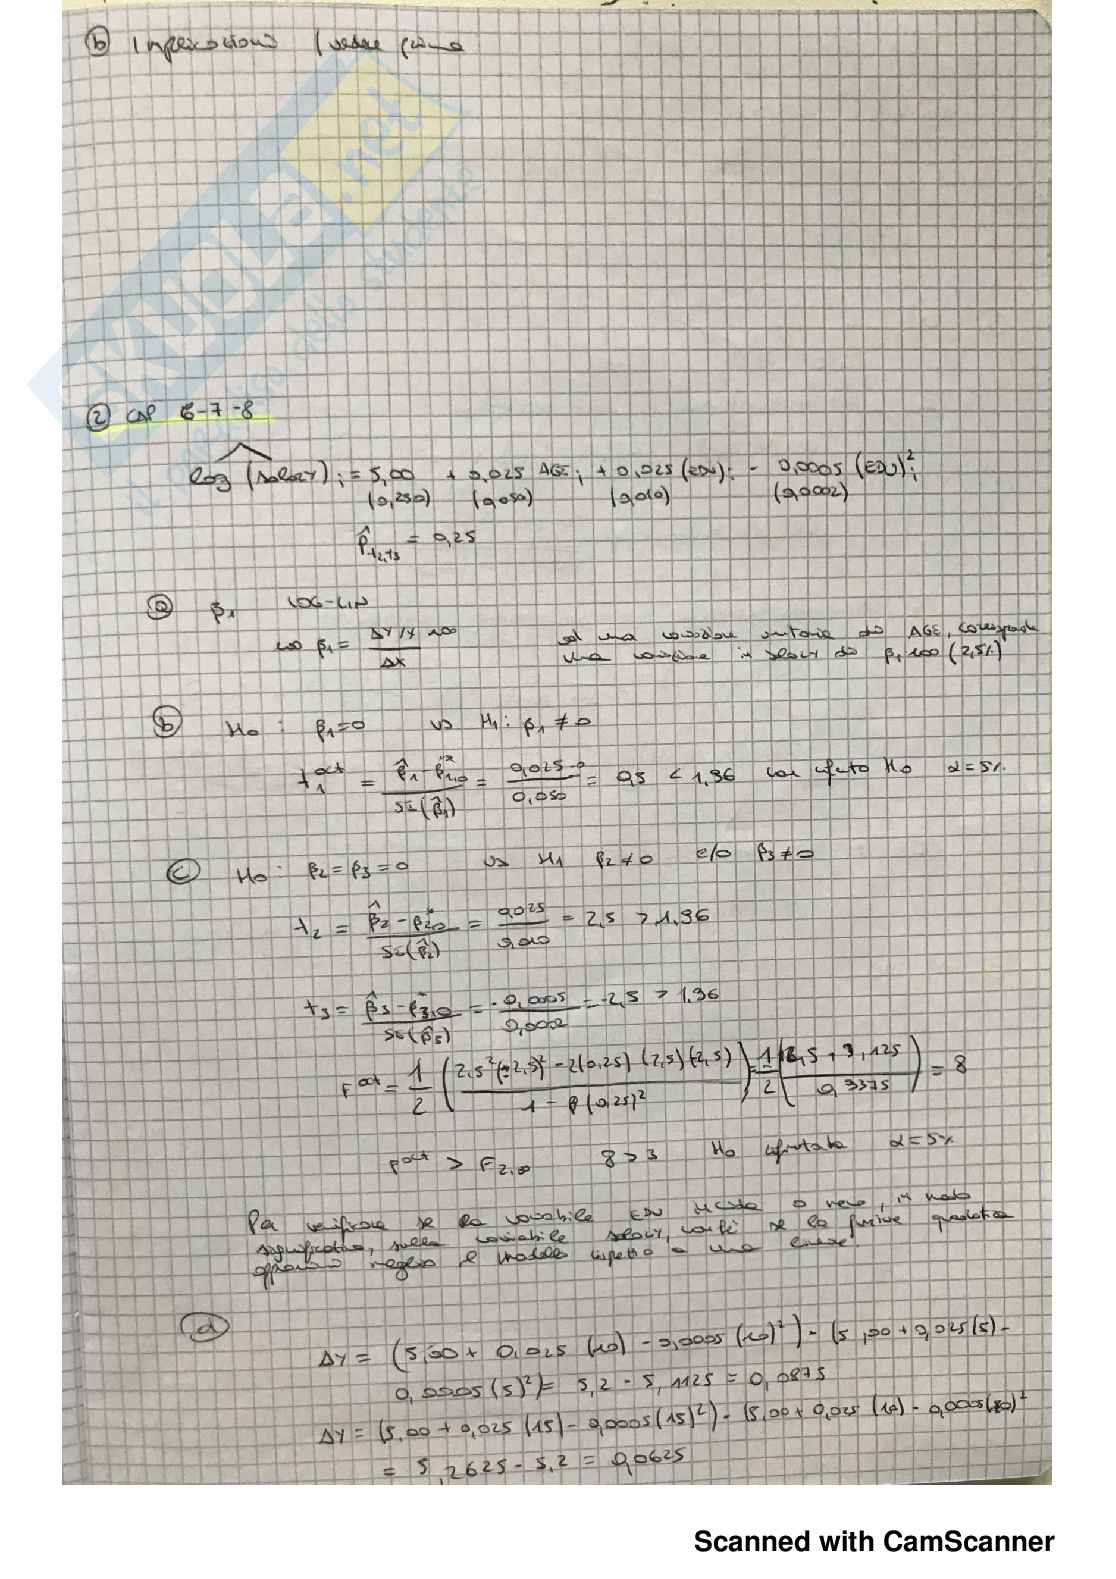 b Implicazioni (vedere prima
SKUOLA.net
② CAP 6-7-8
log (salary)i = 5,00 + 0,025 AGEi + 0,025 (EDU)i - 0,0005 (EDU)²i
(0,250) (0,050) (0,010) (0,0002)
ρ̂t2,t3 = 0,25
ⓐ β1 LOG-LIN
β1 = ΔY/Y 100 / ΔX
ad una variazione unitaria di AGE, corrisponde
una variazione in salary di β1 100 (2,5%)
ⓑ H0: β1=0 vs H1: β1 ≠ 0
t1^act = β̂1 - β1,0 / SE(β̂1) = 0,025-0 / 0,050 = 0,5 < 1,96 H0 α=5%
ⓒ H0: β2=β3=0 vs H1 β2≠0 e/o β3≠0
t2 = β̂2 - β2,0 / SE(β̂2) = 0,025 / 0,010 = 2,5 > 1,96
t3 = β̂3 - β3,0 / SE(β̂3) = -0,0005 / 0,0002 = -2,5 > 1,96
F^act = 1/2 ( 2,5² (-2,5)² - 2(0,25) (2,5) (-2,5) / 1 - (0,25)² ) = 1/2 ( 12,5 + 3,125 / 0,9375 ) = 8
F^act > F2,∞ 8 > 3 H0 rifiutata α=5%
Per verificare se la variabile EDU incida o meno, in modo
significativo, sulla variabile salary, se la funzione quadratica
meglio il modello rispetto a una lineare.
ⓓ
ΔY = (5,00 + 0,025 (10) - 0,0005 (10)²) - (5,00 + 0,025(5) -
0,0005(5)²) = 5,2 - 5,1125 = 0,0875
ΔY = (5,00 + 0,025 (15) - 0,0005(15)²) - (5,00 + 0,025 (10) - 0,0005(10)²
= 5,2625 - 5,2 = 0,0625
Scanned with CamScanner